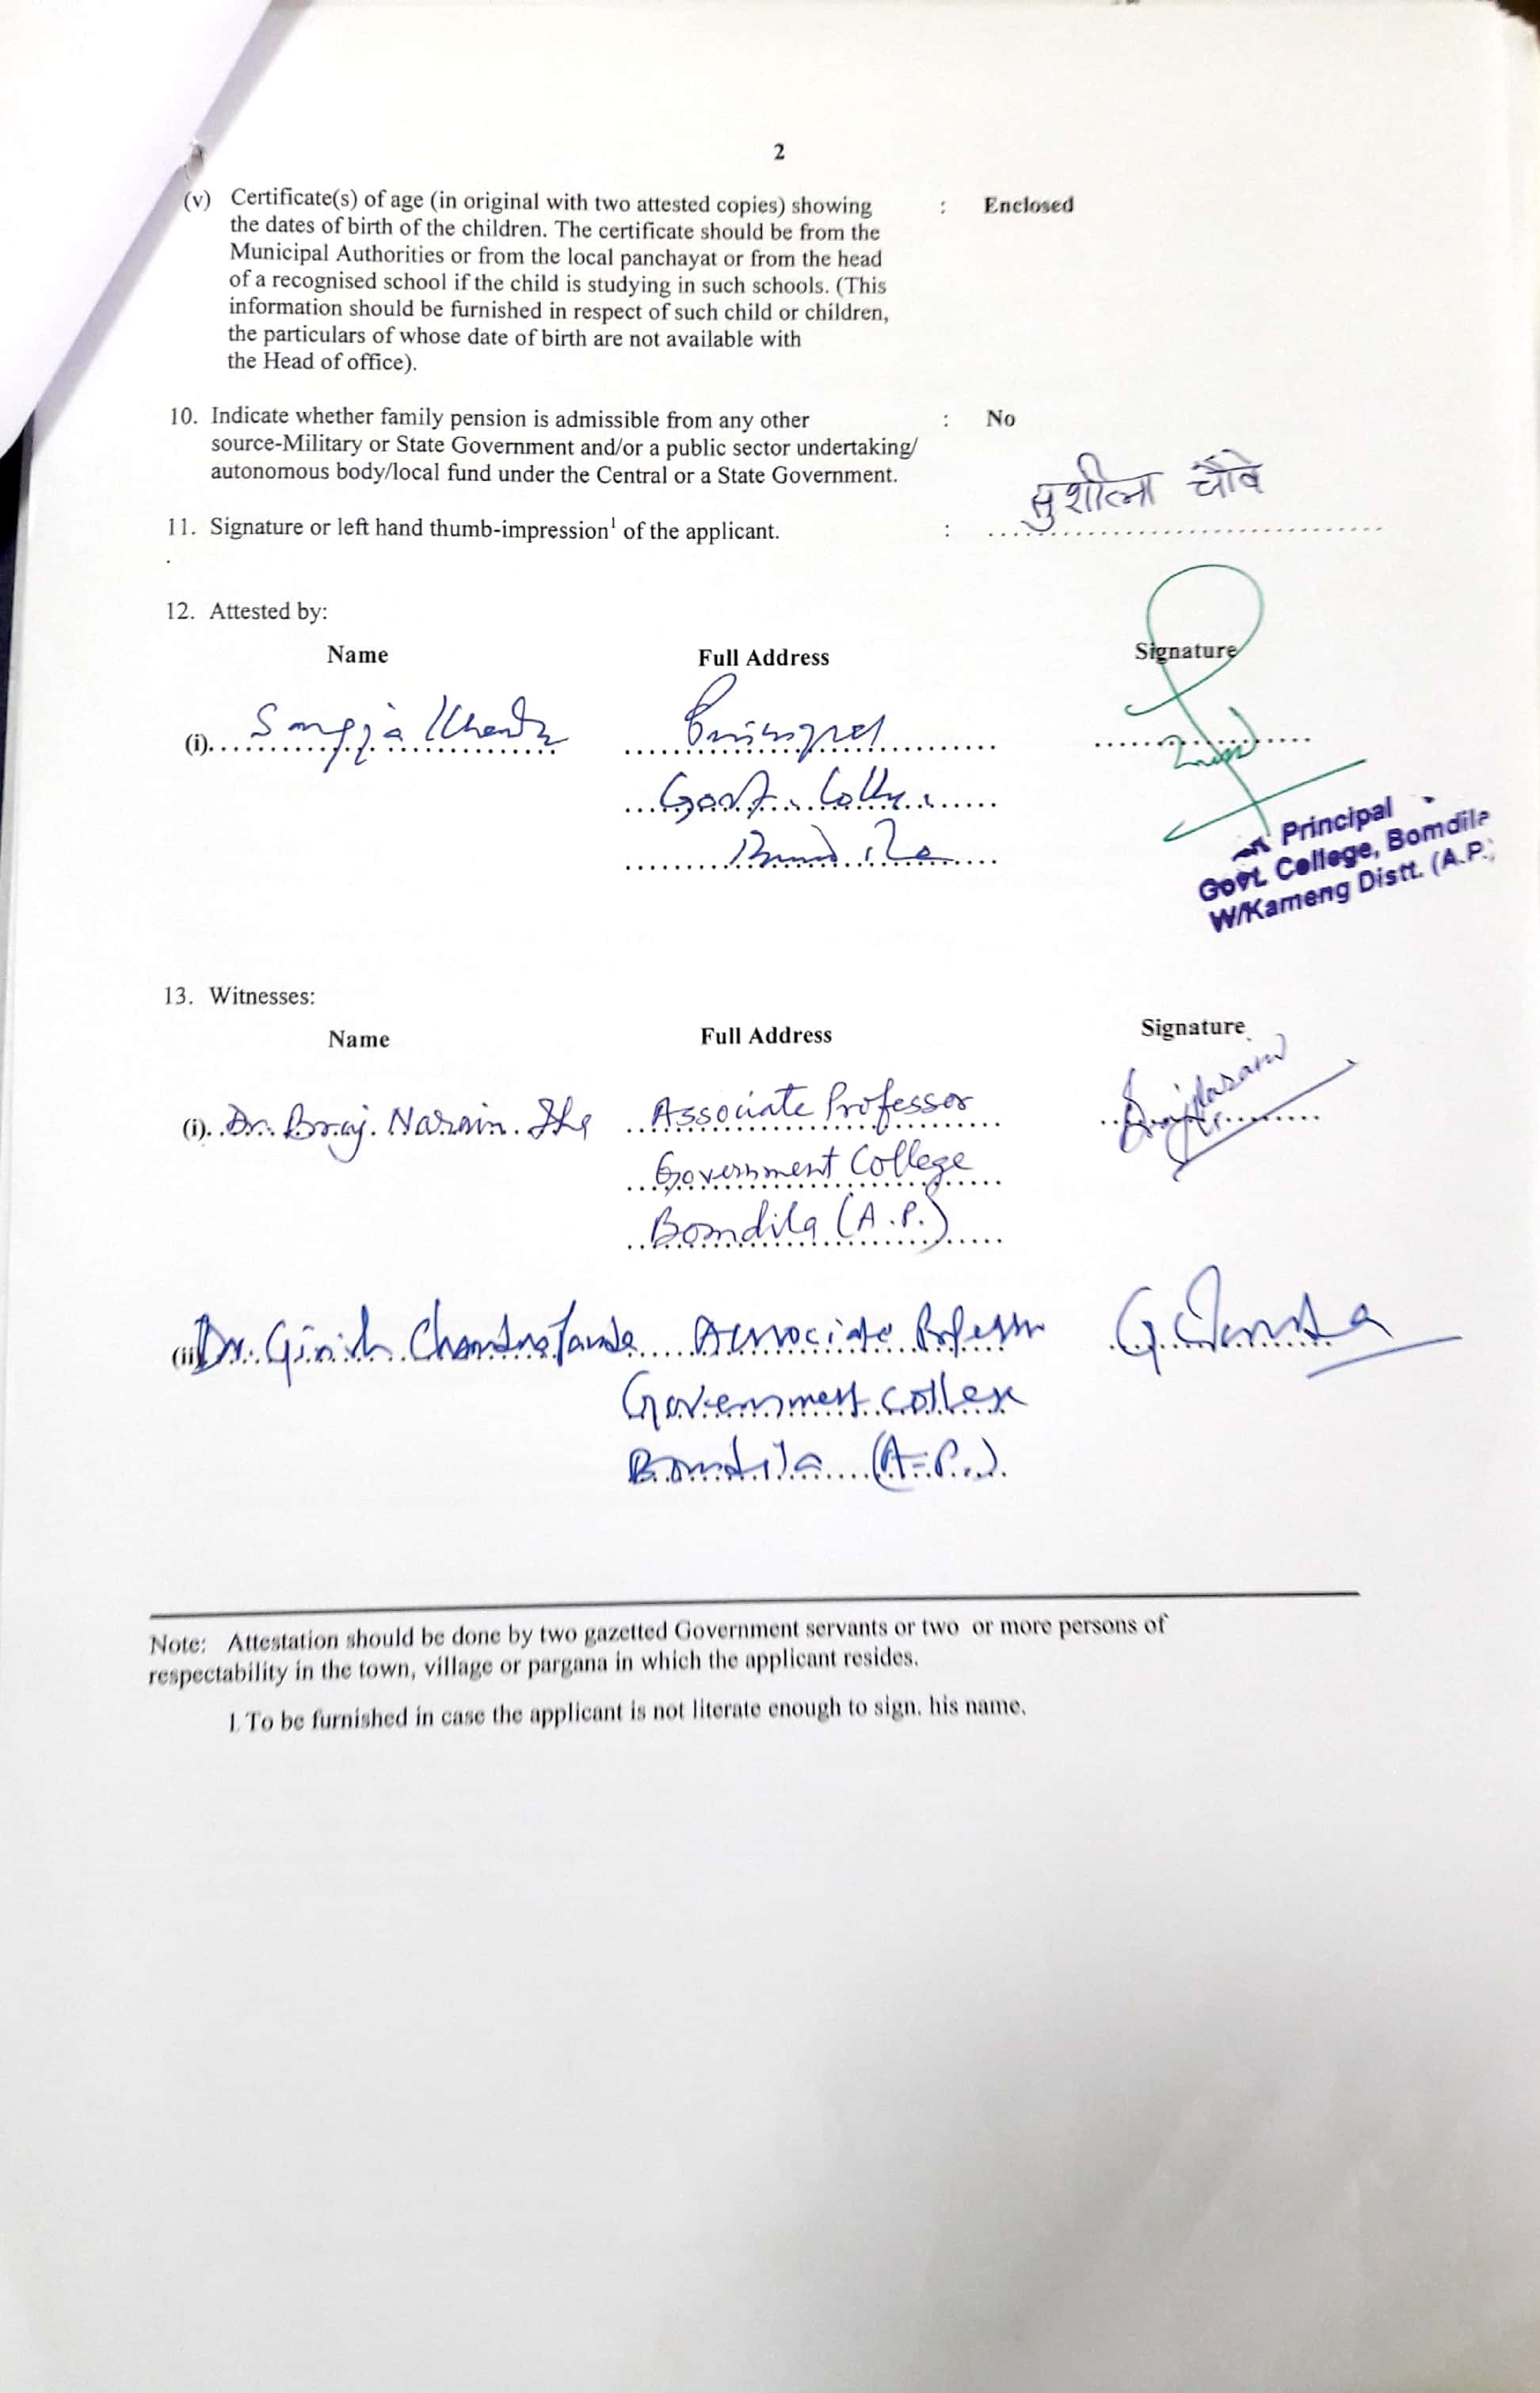 2
(v) Certificate(s) of age (in original with two attested copies) showing : Enclosed
the dates of birth of the children. The certificate should be from the
Municipal Authorities or from the local panchayat or from the head
of a recognised school if the child is studying in such schools. (This
information should be furnished in respect of such child or children,
the particulars of whose date of birth are not available with
the Head of office).
10. Indicate whether family pension is admissible from any other : No
source-Military or State Government and/or a public sector undertaking/
autonomous body/local fund under the Central or a State Government.
सुशीला चौबे
11. Signature or left hand thumb-impression¹ of the applicant. :
12. Attested by:
Name Full Address Signature
(i). Principal
Govt. College
Bomdila
Principal
Govt. College, Bomdila
W/Kameng Distt. (A.P.)
13. Witnesses:
Name Full Address Signature
(i). Dr. Braj Narain Jha Associate Professor
Government College
Bomdila (A.P.)
(ii) Dr. Girish Chandra Associate Professor
Government College
Bomdila (A.P.)
Note: Attestation should be done by two gazetted Government servants or two or more persons of
respectability in the town, village or pargana in which the applicant resides.
1. To be furnished in case the applicant is not literate enough to sign. his name.